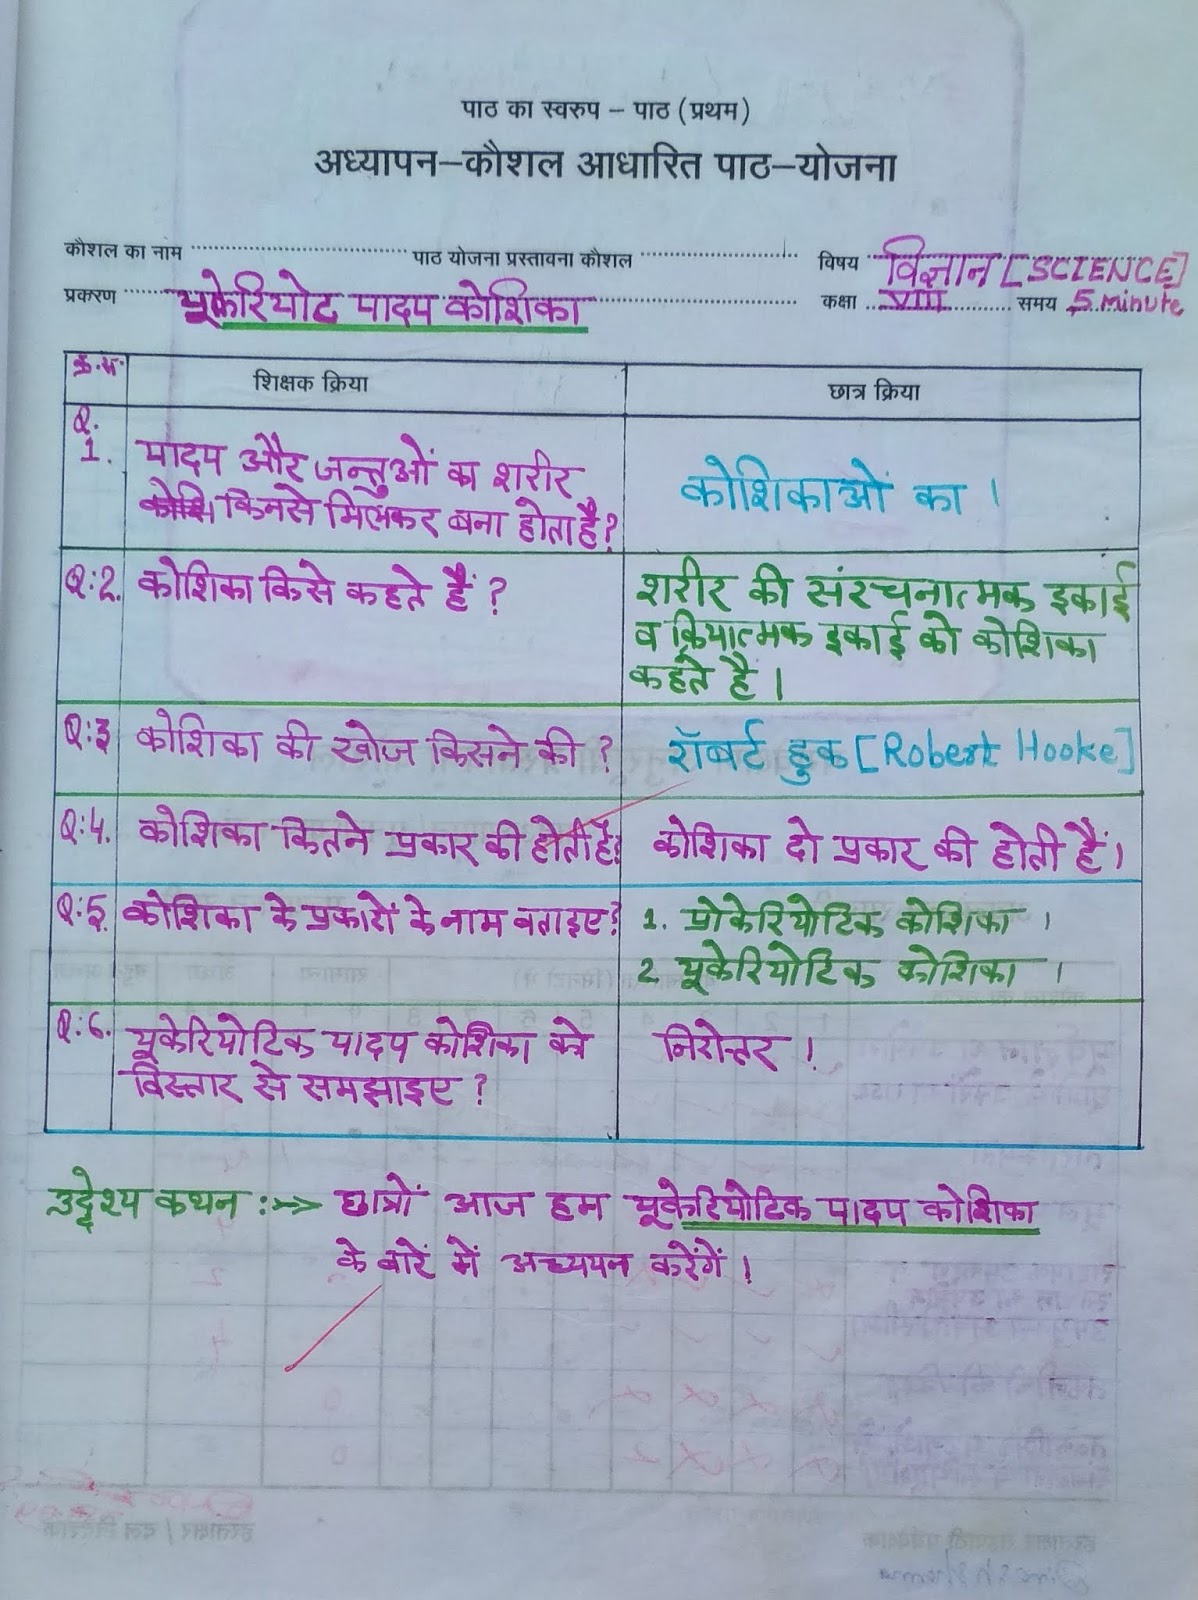 पाठ का स्वरुप – पाठ (प्रथम)
अध्यापन–कौशल आधारित पाठ–योजना
कौशल का नाम ........ पाठ योजना प्रस्तावना कौशल ........ विषय विज्ञान [SCIENCE]
प्रकरण यूकेरियोट पादप कोशिका ........ कक्षा VIII समय 5 minute
क्र.सं. शिक्षक क्रिया छात्र क्रिया
Q.
1. पादप और जन्तुओं का शरीर
किनसे मिलकर बना होता है?
कोशिकाओं का ।
Q:2. कोशिका किसे कहते हैं ?
शरीर की संरचनात्मक इकाई
व क्रियात्मक इकाई को कोशिका
कहते हैं ।
Q:3 कोशिका की खोज किसने की ? रॉबर्ट हुक [Robert Hooke]
Q:4. कोशिका कितने प्रकार की होती है? कोशिका दो प्रकार की होती हैं।
Q:5. कोशिका के प्रकारों के नाम बताइए?
1. प्रोकेरियोटिक कोशिका ।
2. यूकेरियोटिक कोशिका ।
Q:6. यूकेरियोटिक पादप कोशिका को
विस्तार से समझाइए ?
निरोत्तर !
उद्देश्य कथन :->> छात्रों आज हम यूकेरियोटिक पादप कोशिका
के बारें में अध्ययन करेंगें ।